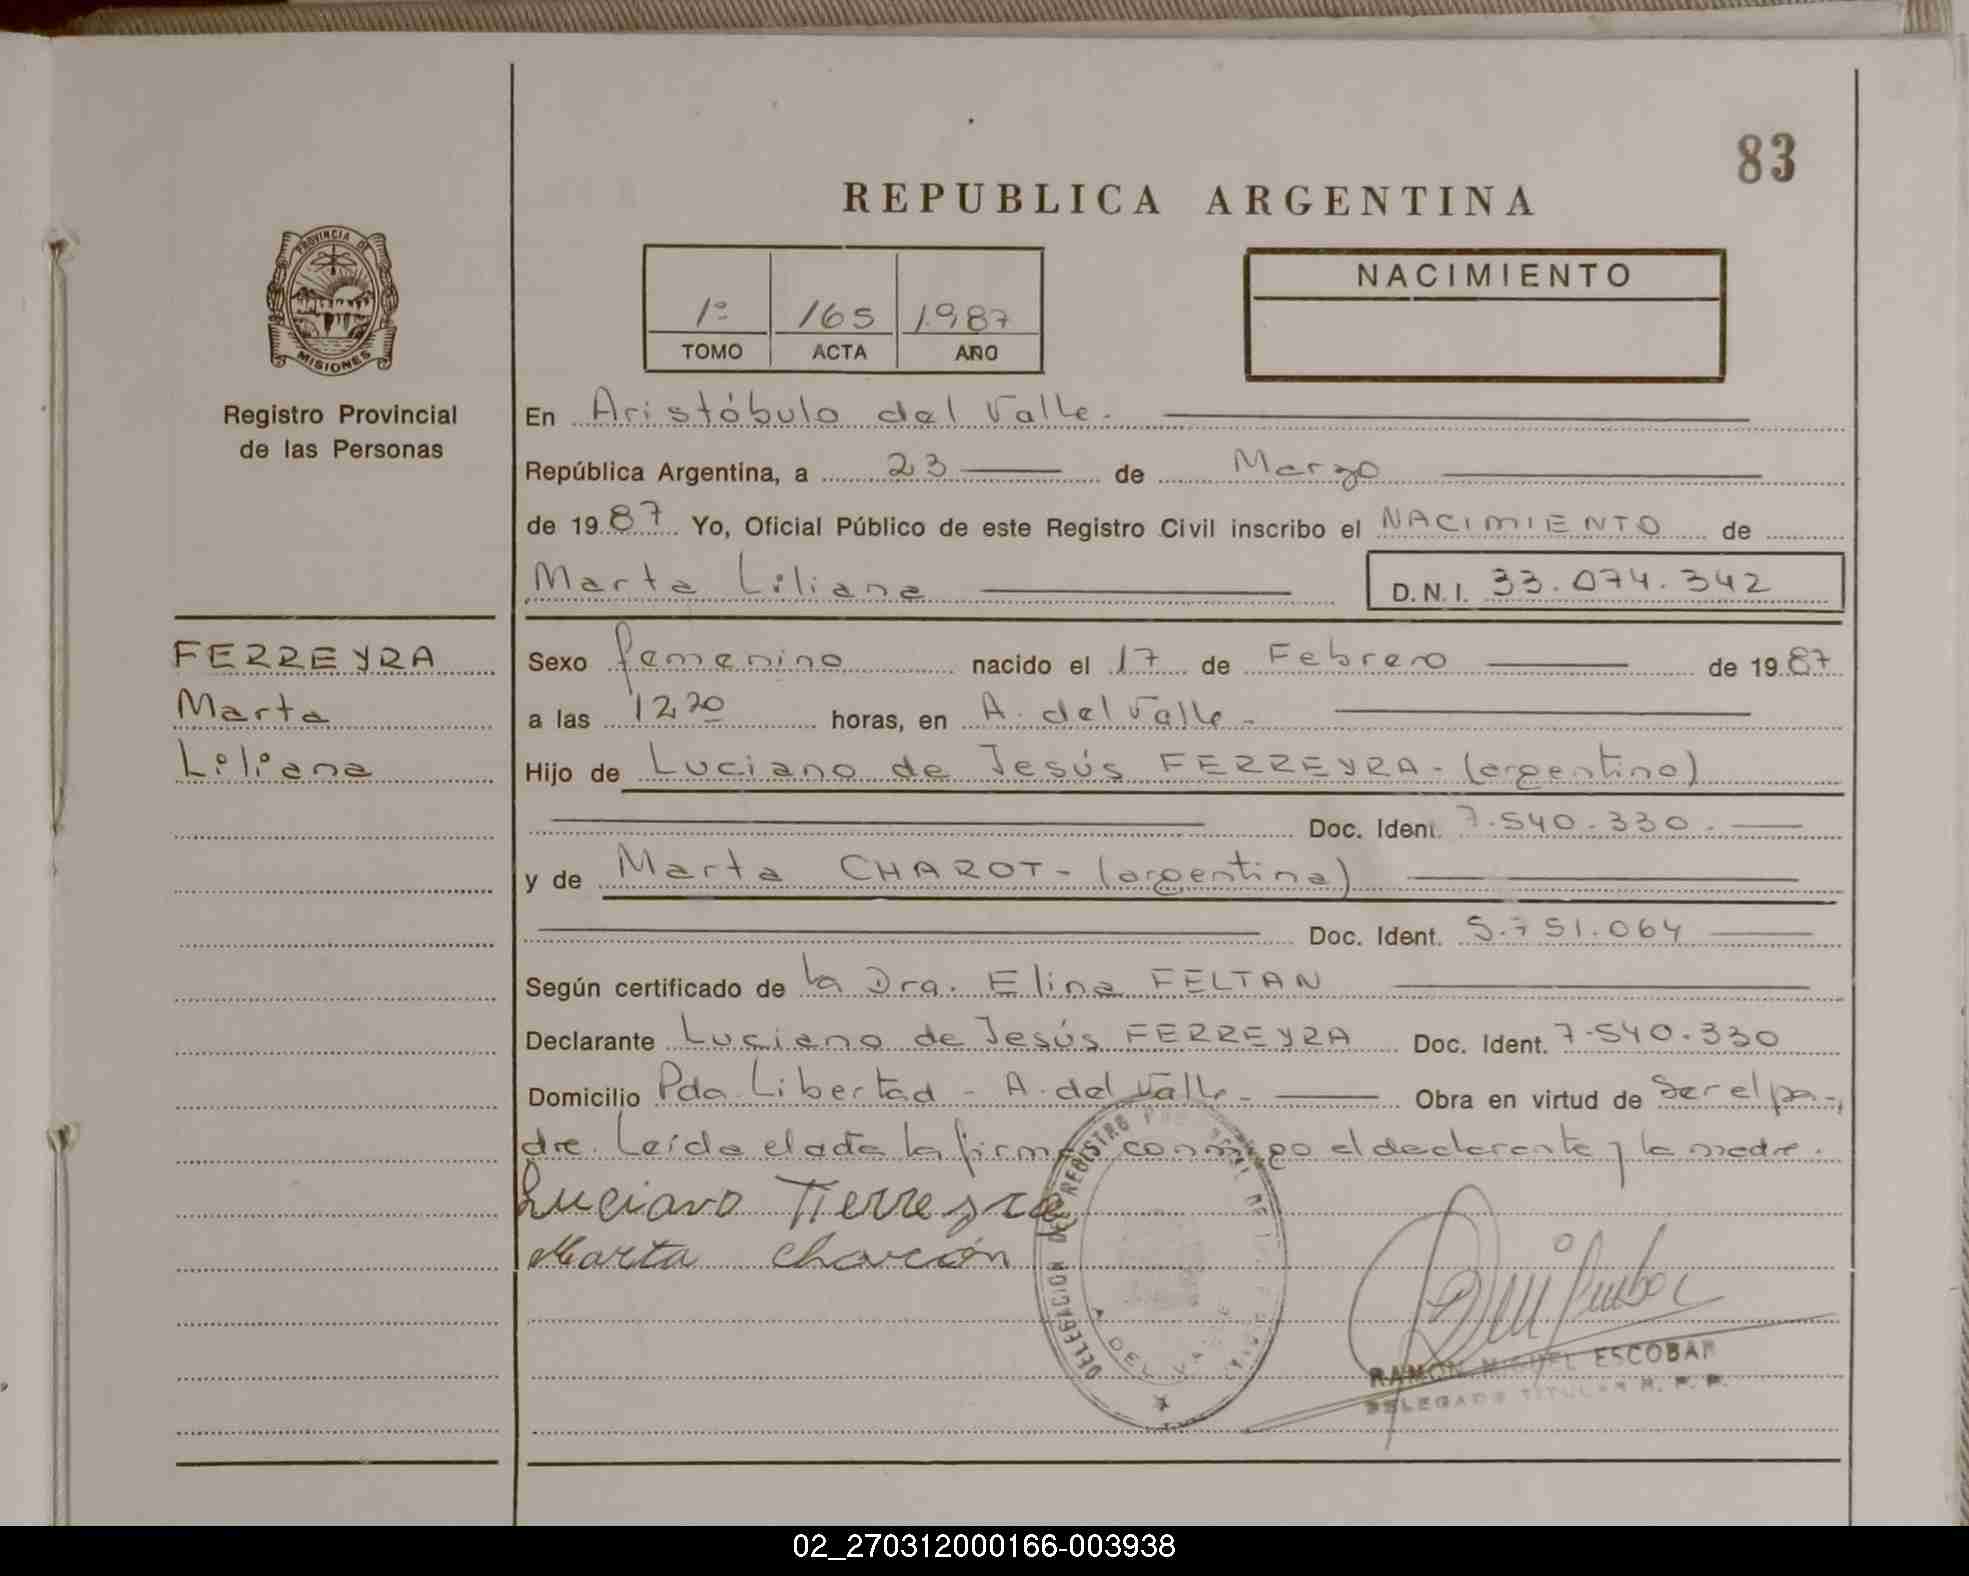 83
REPUBLICA ARGENTINA
PROVINCIA DE
MISIONES
Registro Provincial
de las Personas
1º 165 1987
TOMO ACTA AÑO
NACIMIENTO
En Aristóbulo del Valle.
República Argentina, a 23 de Marzo
de 1987 Yo, Oficial Público de este Registro Civil inscribo el NACIMIENTO de
Marta Liliana D.N.I. 33.074.342
FERREYRA
Marta
Liliana
Sexo femenino nacido el 17 de Febrero de 1987
a las 12,20 horas, en A. del Valle-
Hijo de Luciano de Jesús FERREYRA - (argentino)
Doc. Ident. 7.540.330.
y de Marta CHAROT - (argentina)
Doc. Ident. 5.751.064
Según certificado de la Dra. Elina FELTAN
Declarante Luciano de Jesús FERREYRA Doc. Ident. 7.540.330
Domicilio Pda. Libertad - A. del Valle- Obra en virtud de ser el pa-
dre. Leída el acta la firma conmigo el declarante y la madre.
Luciano Ferreyra
Marta
DELEGACION DEL REGISTRO
A. DEL VALLE
RAMON MIGUEL ESCOBAR
DELEGADO TITULAR R. P. P.
02_270312000166-003938